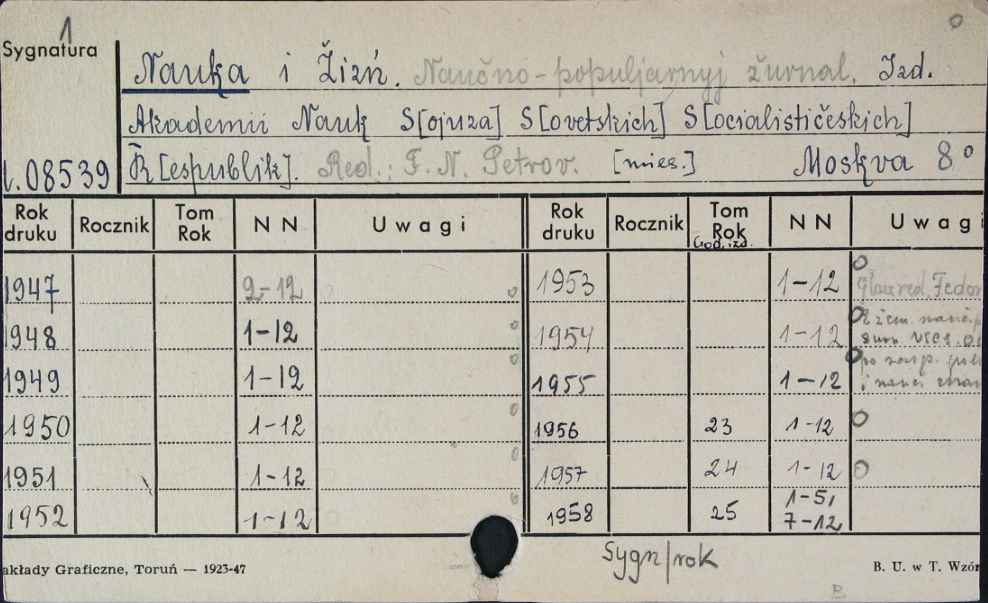 1
Sygnatura
Nauka i Žizń. Naučno-populjarnyj žurnal. Izd.
Akademii Nauk S[ojuza] S[ovetskich] S[ocialističeskich]
08539
R[espublik]. Red.: F. N. Petrov. [mies.] Moskva 8°
Rok druku Rocznik Tom Rok N N Uwagi Rok druku Rocznik Tom Rok God. izd. N N Uwagi
1947 2-12 1953 1-12 red. Fedor
1948 1-12 1954 1-12
1949 1-12 1955 1-12
1950 1-12 1956 23 1-12
1951 1-12 1957 24 1-12
1952 1-12 1958 25 1-5, 7-12
Sygn/rok
akłady Graficzne, Toruń — 1923-47 B. U. w T. Wzór